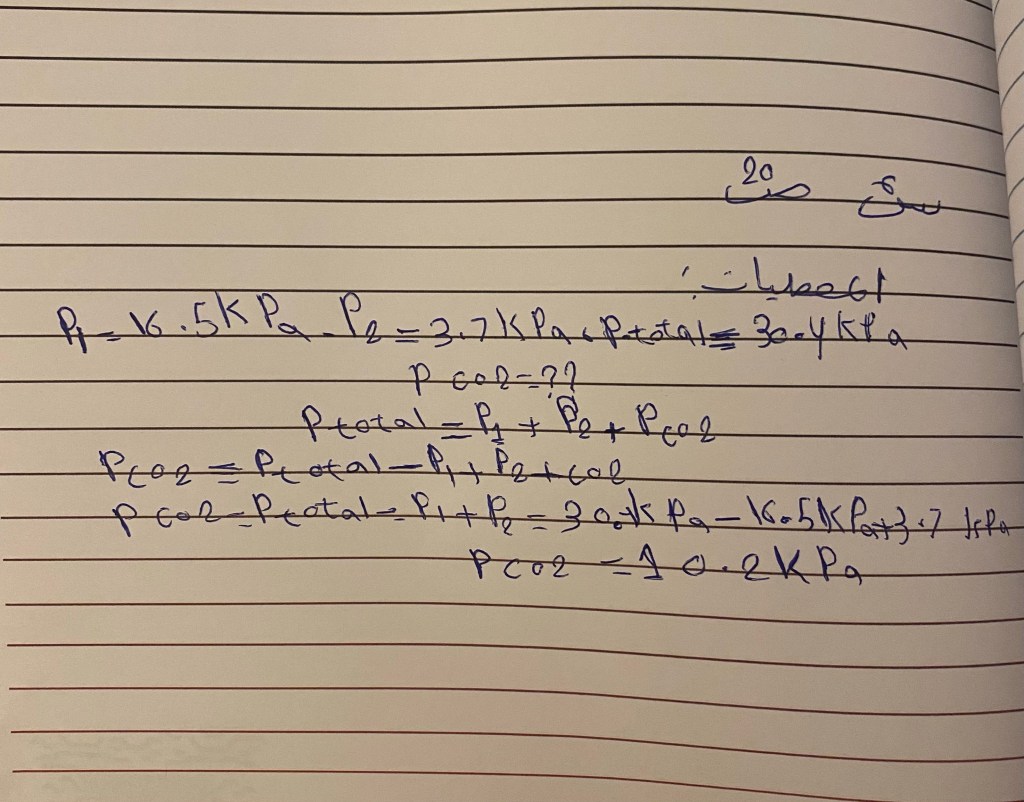 س6 ص20
المعطيات:
P1 = 16.5 kPa - P2 = 3.7 kPa، Ptotal = 30.4 kPa
P co2 = ??
Ptotal = P1 + P2 + Pco2
Pco2 = Ptotal - P1 + P2 + co2
P co2 = Ptotal - P1 + P2 = 30.4 k Pa - 16.5 kPa + 3.7 kPa
Pco2 = 10.2 kPa